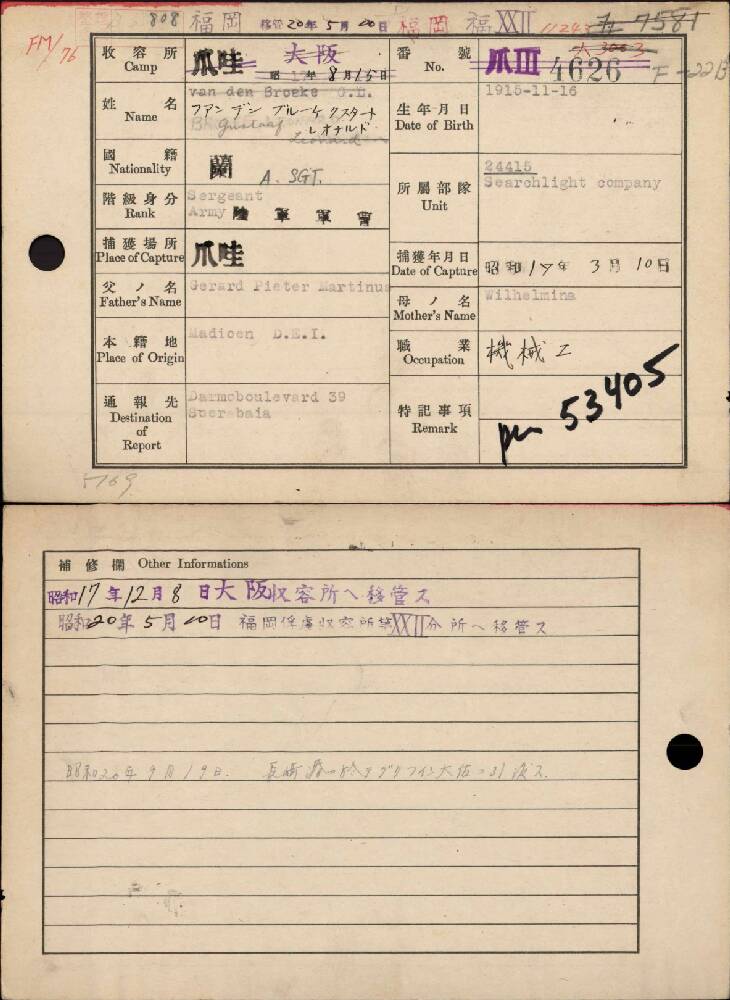 808 福岡 移管20年5月20日 福岡 福XXII 11243 7581
FM/76
收容所 Camp 爪哇 大阪 番號 No. 爪III 4626 F-22B
昭17年8月15日
姓名 Name van den Broeke G.L. 生年月日 Date of Birth 1915-11-16
ファン デン ブルーケ グスタート レオナルド
Gustaaf Leonard
國籍 Nationality 蘭 A. SGT. 所屬部隊 Unit 24415
Searchlight company
階級身分 Rank Sergeant
Army 陸軍軍曹
捕獲場所 Place of Capture 爪哇 捕獲年月日 Date of Capture 昭和17年3月10日
父ノ名 Father's Name Gerard Pieter Martinus 母ノ名 Mother's Name Wilhelmina
本籍地 Place of Origin Madioen D.E.I. 職業 Occupation 機械工
通報先 Destination of Report Darmoboulevard 39
Soerabaia 特記事項 Remark 53405
5769
補修欄 Other Informations
昭和17年12月8日大阪収容所ヘ移管ス
昭和20年5月20日 福岡俘虜収容所第XXII分所ヘ移管ス
昭和20年9月19日